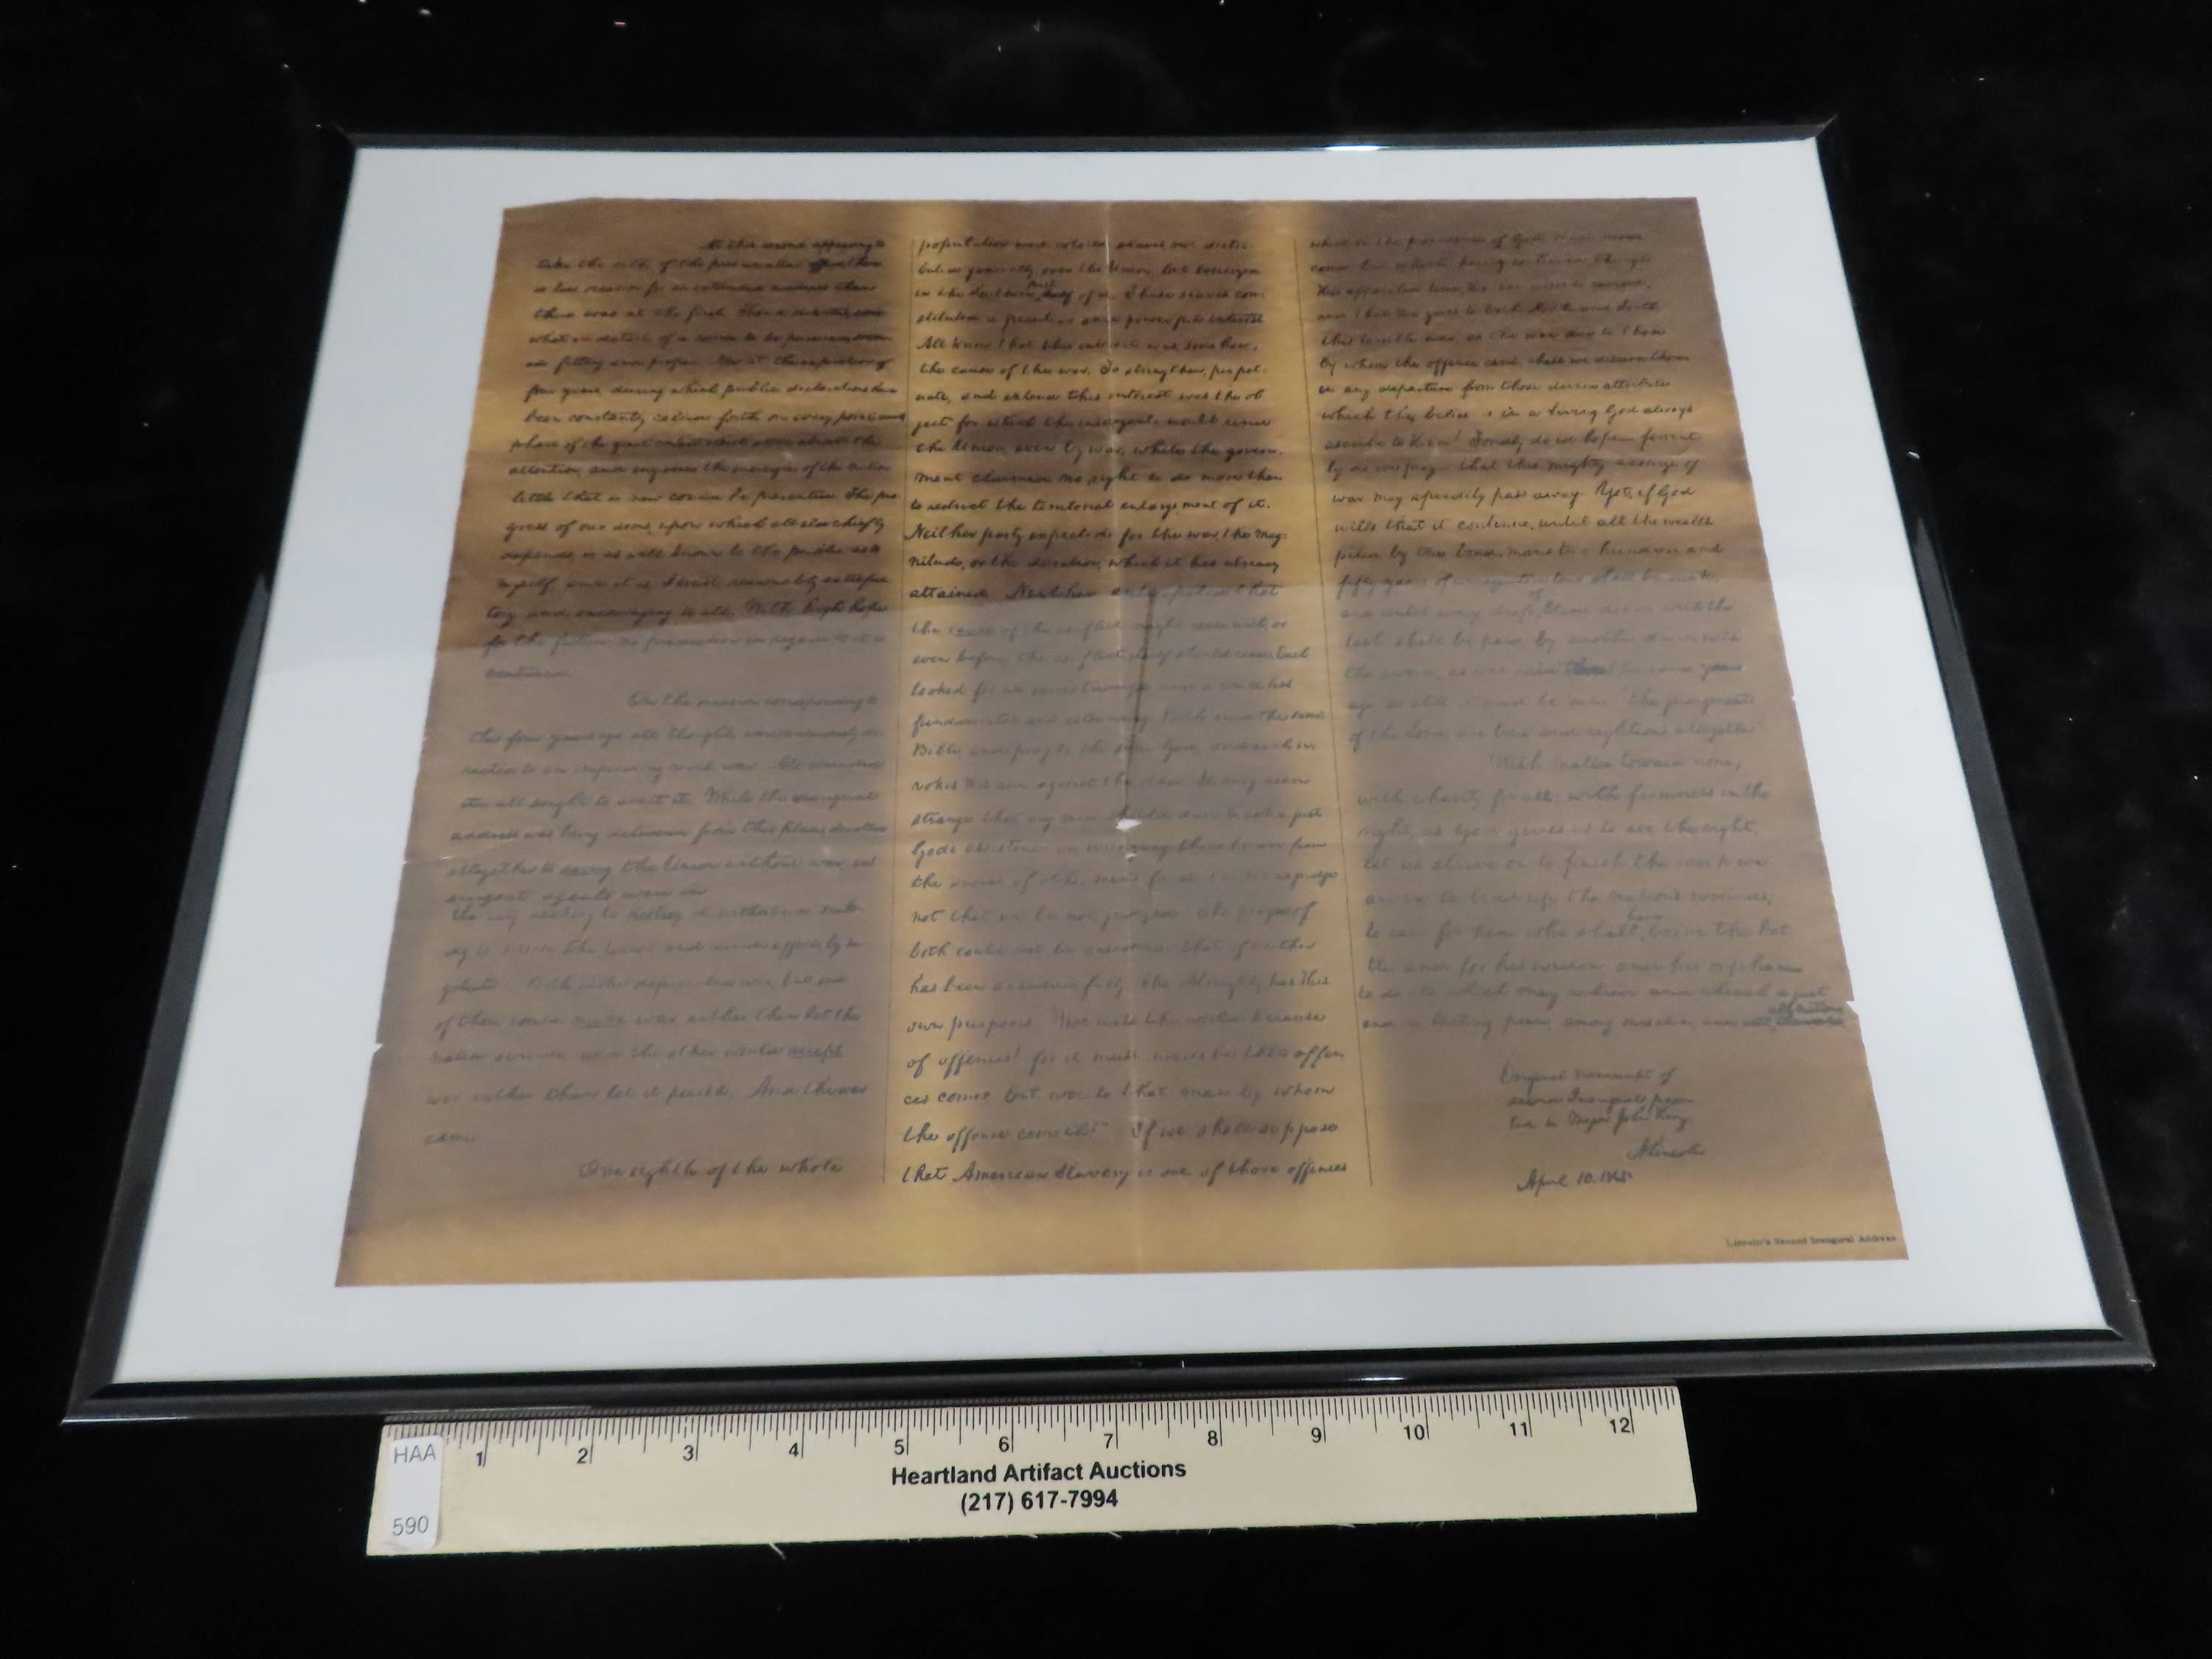 At this second appearing to
take the oath of the presidential office, there
is less occasion for an extended address than
there was at the first. Then a statement, some
what in detail, of a course to be pursued, seem
ed fitting and proper. Now, at the expiration of
four years, during which public declarations have
been constantly called forth on every point and
phase of the great contest which still absorbs the
attention, and engrosses the energies of the nation
little that is new could be presented. The pro
gress of our arms, upon which all else chiefly
depends, is as well known to the public as to
myself; and it is, I trust, reasonably satisfac
tory and encouraging to all. With high hope
for the future, no prediction in regard to it is
ventured.
On the occasion corresponding to
this four years ago, all thoughts were anxiously di
rected to an impending civil war. All dreaded
it all sought to avert it. While the inaugural
address was being delivered from this place, devoted
altogether to saving the Union without war, in
surgent agents were in
the city seeking to destroy it without war seek
ing to dissolve the Union, and divide effects, by ne
gotiation. Both parties deprecated war; but one
of them would make war rather than let the
nation survive; and the other would accept
war rather than let it perish. And the war
came.
One eighth of the whole
population were colored slaves, not distri
buted generally over the Union, but localized
in the Southern part half of it. These slaves con
stituted a peculiar and powerful interest
All knew that this interest was, some how,
the cause of the war. To strengthen, perpet
uate, and extend this interest was the ob
ject for which the insurgents would rend
the Union, even by war; while the govern
ment claimed no right to do more than
to restrict the territorial enlargement of it.
Neither party expected for the war, the mag
nitude, or the duration, which it has already
attained. Neither anticipated that
the cause of the conflict might cease with, or
even before, the conflict itself should cease. Each
looked for an easier triumph, and a result less
fundamental and astounding. Both read the same
Bible, and pray to the same God; and each in
vokes His aid against the other. It may seem
strange that any men should dare to ask a just
God's assistance in wringing their bread from
the sweat of other men's faces; but let us judge
not that we be not judged. The prayers of
both could not be answered; that of neither
has been answered fully. The Almighty has His
own purposes. "Woe unto the world because
of offences! for it must needs be that offen
ces come; but woe to that man by whom
the offence cometh!" If we shall suppose
that American Slavery is one of those offences
which, in the providence of God, must needs
come, but which, having continued through
His appointed time, He now wills to remove,
and that He gives to both North and South,
this terrible war, as the woe due to those
by whom the offence came, shall we discern therein
any departure from those divine attributes
which the believers in a Living God always
ascribe to Him? Fondly do we hope fervent
ly do we pray that this mighty scourge of
war may speedily pass away. Yet, if God
wills that it continue, until all the wealth
piled by the bond-man's two hundred and
fifty years of unrequited toil shall be sunk,
and until every drop of blood drawn with the
lash, shall be paid by another drawn with
the sword, as was said three thousand years
ago, so still it must be said "the judgments
of the Lord, are true and righteous altogether
With malice toward none;
with charity for all; with firmness in the
right, as God gives us to see the right,
let us strive on to finish the work we
are in; to bind up the nation's wounds;
to care for him who shall have borne the bat
tle, and for his widow, and his orphan
to do all which may achieve and cherish a just
and a lasting peace, among ourselves, and with all nations
Original manuscript of
second Inaugural presen
ted to Major John Hay
A. Lincoln
April 10, 1865
Lincoln's Second Inaugural Address
HAA
590
1 2 3 4 5 6 7 8 9 10 11 12
Heartland Artifact Auctions
(217) 617-7994